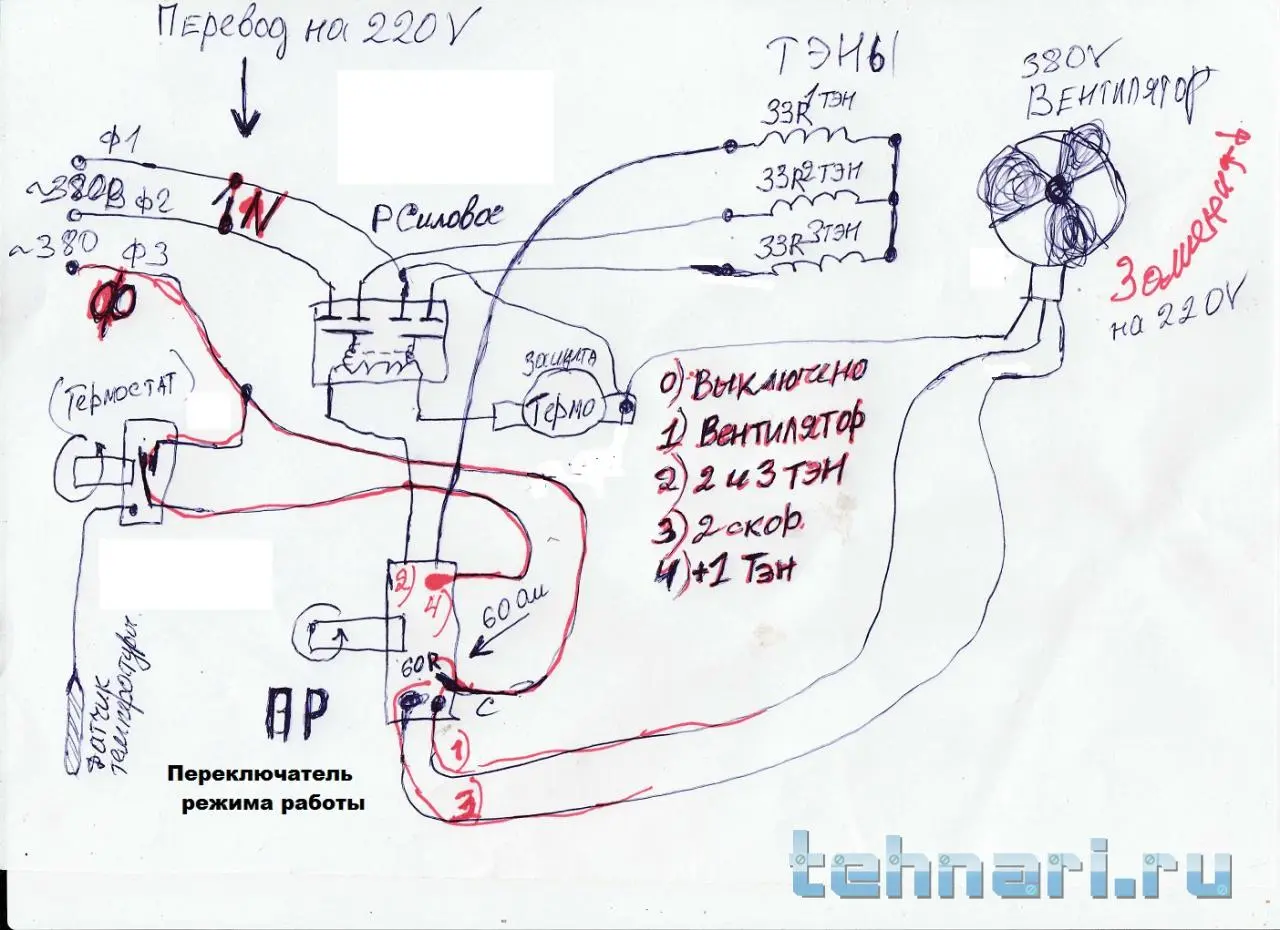 Перевод на 220V
ТЭНЫ
380V
ВЕНТИЛЯТОР
Заменить
на 220V
1ТЭН
33R
2ТЭН
33R
3ТЭН
33R
Ф1
~380В Ф2
N
~380 Ф3
Ф
Р Силовое
(Термостат)
защита
Термо
0) Выключено
1) Вентилятор
2) 2 и 3 ТЭН
3) 2 скор.
4) +1 Тэн
2)
4)
60 Ом
60R
С
ПР
1)
3)
Датчик
температуры.
Переключатель
режима работы
tehnari.ru